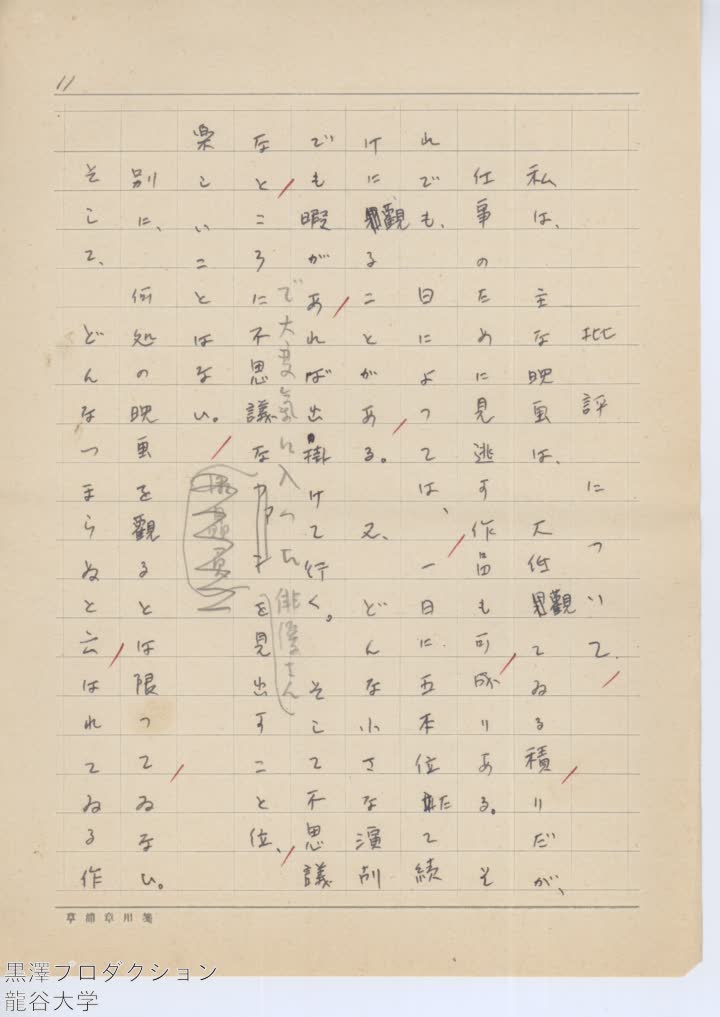 11
批評について
私は、主な映画は、大低観てゐる積りだが、
仕事のために見逃す作品も可成りある。そ
れでも、日によつては、一日に五本位たて続
けに観ることがある。又、どんな小さな演劇
でも暇があれば出掛けて行く。そこで不思議
なところに不思議な
を見出すこと位、
で大変氣に入つた俳優さん
楽しいことはない。
別に、何処の映画を観るとは限つてゐない。
そして、どんなつまらぬと云はれてゐる作
草稿章用箋
黒澤プロダクション
龍谷大学